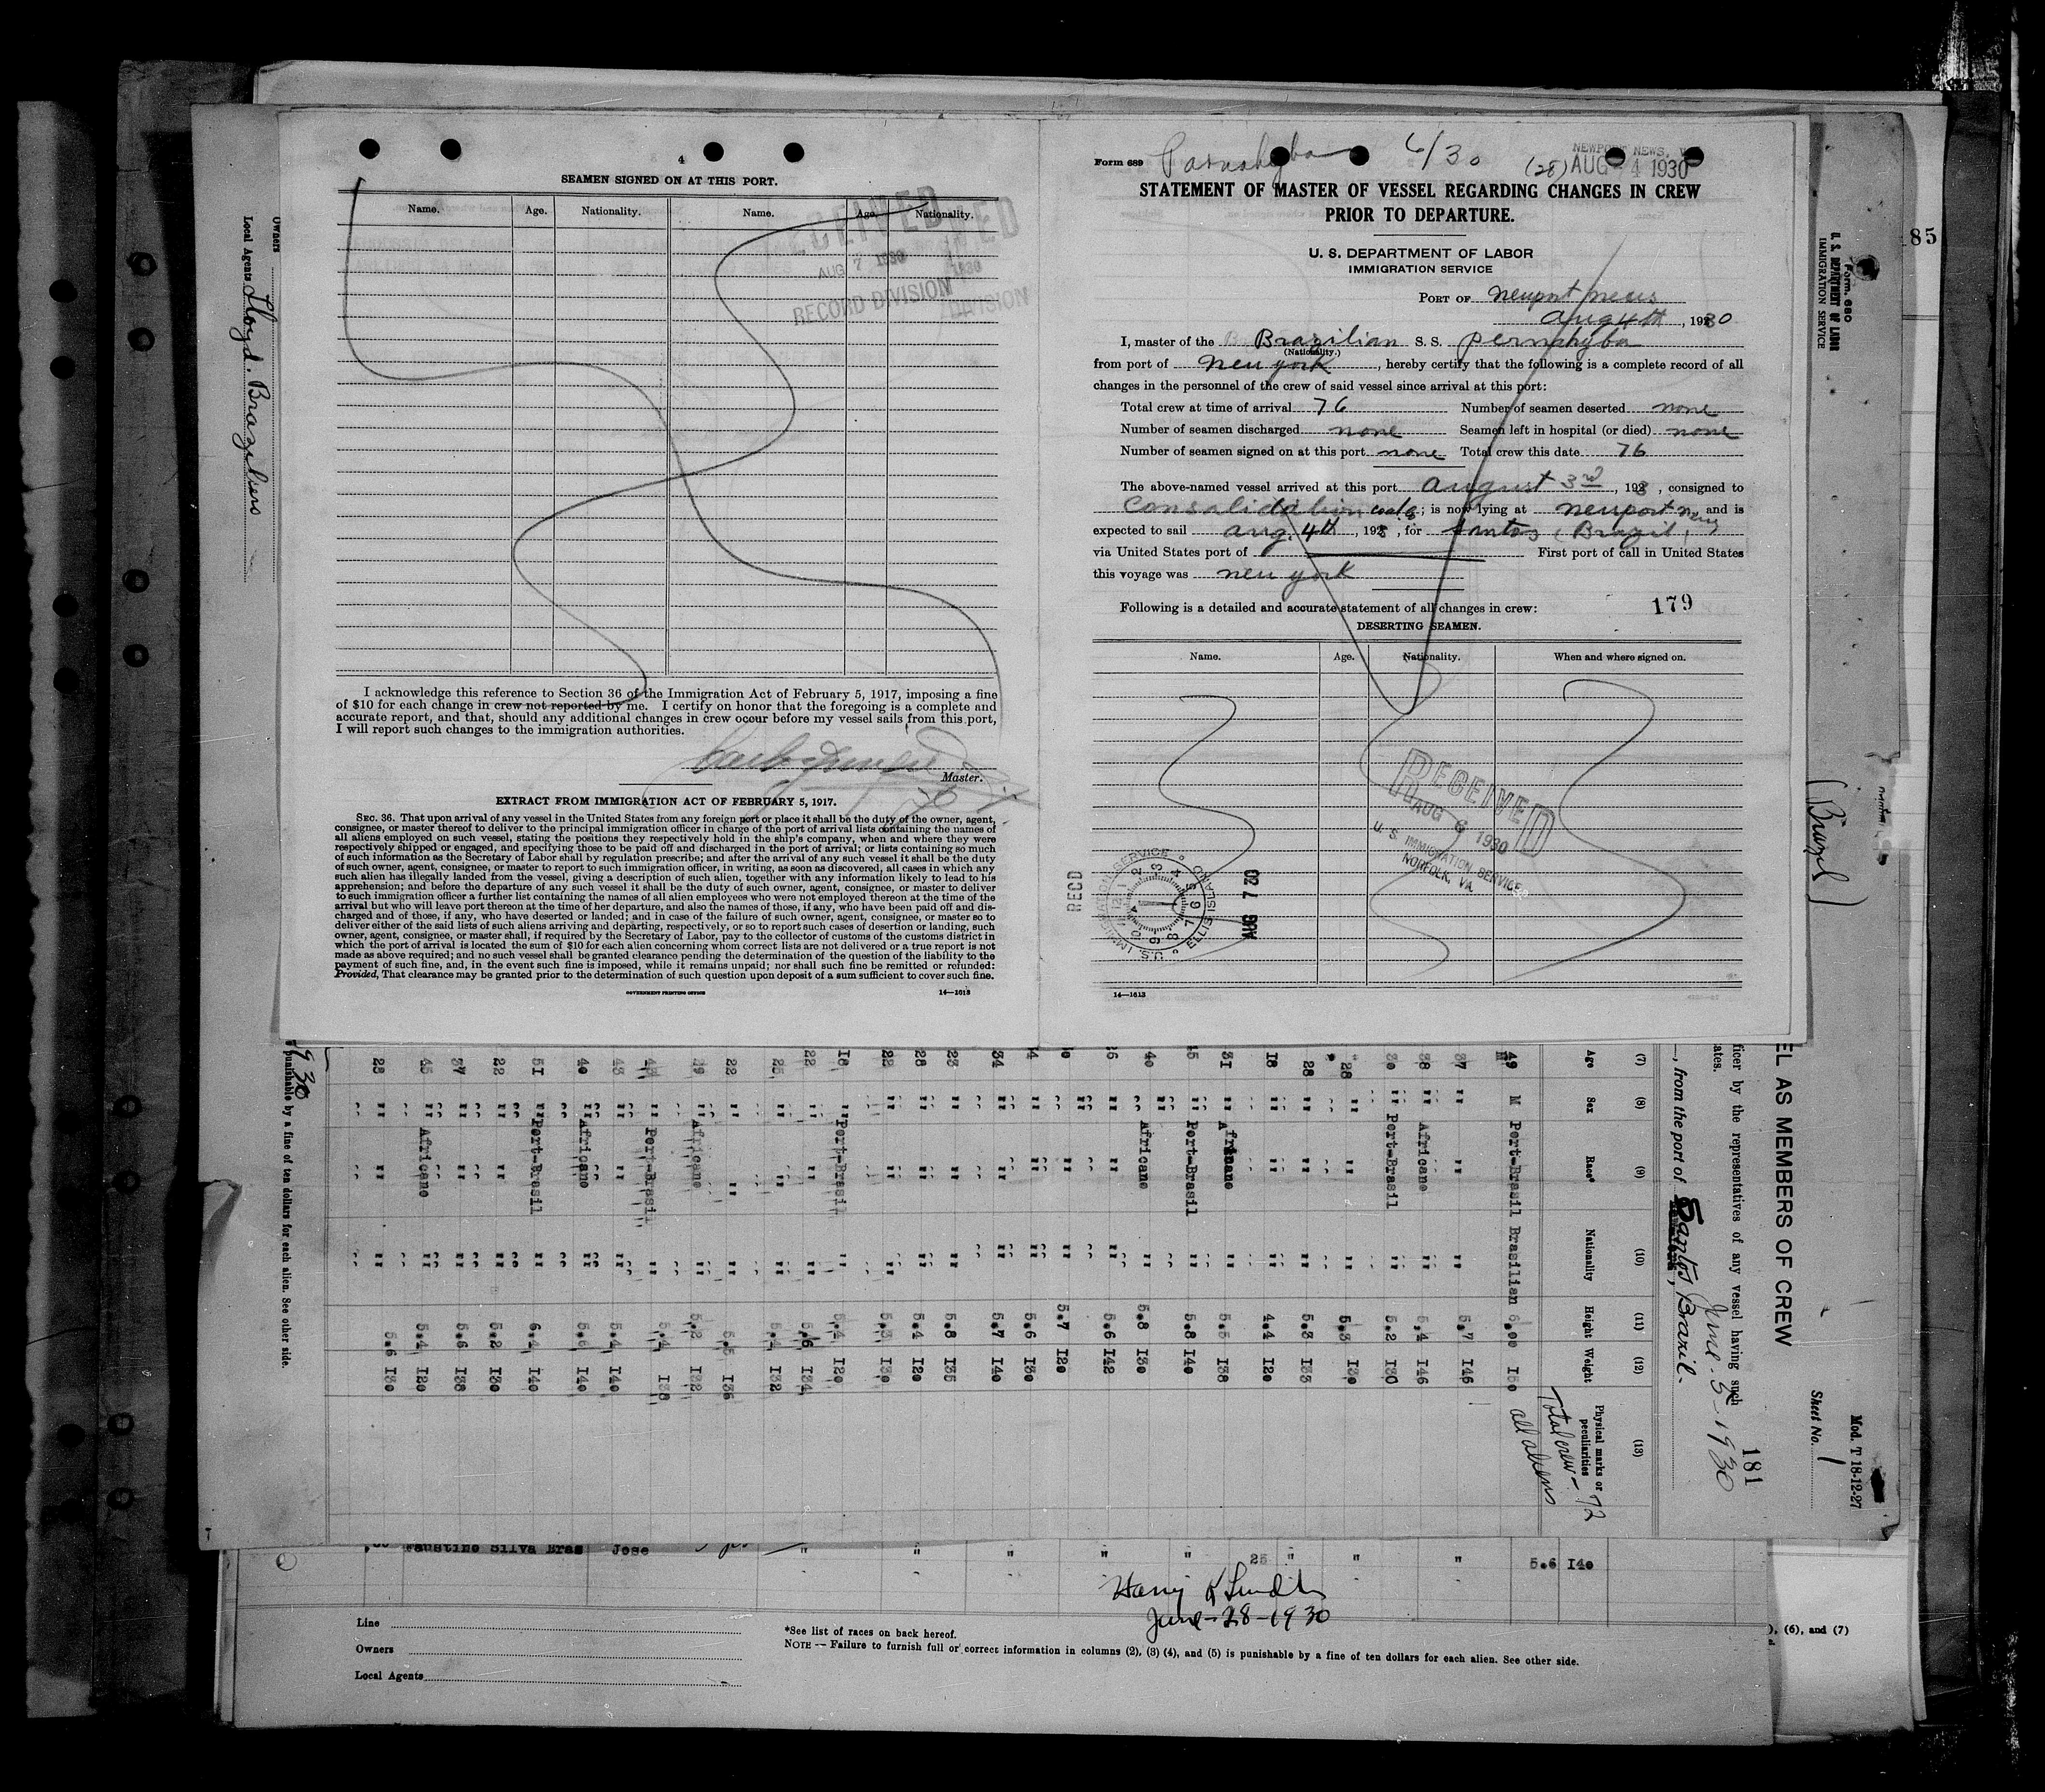 4
SEAMEN SIGNED ON AT THIS PORT.
Name. Age. Nationality. Name. Age. Nationality.
RECEIVED
AUG 7 1930
RECORD DIVISION
I acknowledge this reference to Section 36 of the Immigration Act of February 5, 1917, imposing a fine
of $10 for each change in crew not reported by me. I certify on honor that the foregoing is a complete and
accurate report, and that, should any additional changes in crew occur before my vessel sails from this port,
I will report such changes to the immigration authorities.
Master.
EXTRACT FROM IMMIGRATION ACT OF FEBRUARY 5, 1917.
SEC. 36. That upon arrival of any vessel in the United States from any foreign port or place it shall be the duty of the owner, agent,
consignee, or master thereof to deliver to the principal immigration officer in charge of the port of arrival lists containing the names of
all aliens employed on such vessel, stating the positions they respectively hold in the ship's company, when and where they were
respectively shipped or engaged, and specifying those to be paid off and discharged in the port of arrival; or lists containing so much
of such information as the Secretary of Labor shall by regulation prescribe; and after the arrival of any such vessel it shall be the duty
of such owner, agent, consignee, or master to report to such immigration officer, in writing, as soon as discovered, all cases in which any
such alien has illegally landed from the vessel, giving a description of such alien, together with any information likely to lead to his
apprehension; and before the departure of any such vessel it shall be the duty of such owner, agent, consignee, or master to deliver
to such immigration officer a further list containing the names of all alien employees who were not employed thereon at the time of the
arrival but who will leave port thereon at the time of her departure, and also the names of those, if any, who have been paid off and dis-
charged and of those, if any, who have deserted or landed; and in case of the failure of such owner, agent, consignee, or master so to
deliver either of the said lists of such aliens arriving and departing, respectively, or so to report such cases of desertion or landing, such
owner, agent, consignee, or master shall, if required by the Secretary of Labor, pay to the collector of customs of the customs district in
which the port of arrival is located the sum of $10 for each alien concerning whom correct lists are not delivered or a true report is not
made as above required; and no such vessel shall be granted clearance pending the determination of the question of the liability to the
payment of such fine, and, in the event such fine is imposed, while it remains unpaid; nor shall such fine be remitted or refunded:
Provided, That clearance may be granted prior to the determination of such question upon deposit of a sum sufficient to cover such fine.
GOVERNMENT PRINTING OFFICE 14—1613
Form 689 Parnahyba 6/30 (28) NEWPORT NEWS, V
AUG 4 1930
STATEMENT OF MASTER OF VESSEL REGARDING CHANGES IN CREW
PRIOR TO DEPARTURE.
U. S. DEPARTMENT OF LABOR
IMMIGRATION SERVICE
PORT OF Newport News
Aug 4th, 1930
I, master of the Brazilian S. S. Pernahyba
(Nationality.)
from port of New York, hereby certify that the following is a complete record of all
changes in the personnel of the crew of said vessel since arrival at this port:
Total crew at time of arrival 76 Number of seamen deserted none
Number of seamen discharged none Seamen left in hospital (or died) none
Number of seamen signed on at this port none Total crew this date 76
The above-named vessel arrived at this port August 3rd, 192 , consigned to
Consalidation coal c; is now lying at Newport News and is
expected to sail Aug. 4th, 192 , for Santos (Brazil)
via United States port of First port of call in United States
this voyage was New York
Following is a detailed and accurate statement of all changes in crew: 179
DESERTING SEAMEN.
Name. Age. Nationality. When and where signed on.
RECEIVED
AUG 6 1930
U. S. IMMIGRATION SERVICE
NORFOLK, VA.
RECD
IMMIGRATION SERVICE
U.S. ELLIS ISLAND
AUG 7 20
14—1613
85
Form 680
U. S. DEPARTMENT OF LABOR
IMMIGRATION SERVICE
(Brazil)
Owners
Local Agents Lloyd. Brazileiro
Mod. T 18-12-27
Sheet No. 1
181
EL AS MEMBERS OF CREW
ficer by the representatives of any vessel having such
ates.
June-5-1930
, from the port of Santos, Brazil.
(7) (8) (9) (10) (11) (12) (13)
Age Sex Race* Nationality Height Weight Physical marks or peculiarities
Total crew - 72
all aliens
49 M Port-Brasil Brasilian 6,00 150
37 " " " 5,7 146
38 " Africano " 5,4 146
30 " Port-Brasil " 5.2 130
28 " " " 5.3 130
28 " " " 5.3 133
18 " " " 4.4 120
31 " Africano " 5.5 138
45 " Port-Brasil " 5.8 140
40 " Africano " 5.8 130
" " " 5.6 142
" " " 5.7 120
" " " 5.6 130
34 " " " 5.7 140
23 " " " 5.8 135
28 " " " 5.4 120
22 " " " 5.3 130
18 " Port-Brasil " 5.4 120
22 " " " 5.6 134
25 " " " 5.4 132
22 " " " 5.5 136
39 " Africano " 5.2 132
" Port-Brasil " 5.4 138
43 " " " 5.4 140
40 " Africano " 5.6 140
51 " Port-Brasil " 6.4 140
22 " " " 5.2 130
37 " " " 5.6 138
45 " Africano " 5.4 120
28 " " " 5.6 130
punishable by a fine of ten dollars for each alien. See other side.
930
Faustino Silva Bras Jose " " " " " 25 " " " 5.6 140
June-28-1930
Line
Owners
Local Agents
*See list of races on back hereof.
NOTE — Failure to furnish full or correct information in columns (2), (3) (4), and (5) is punishable by a fine of ten dollars for each alien. See other side.
), (6), and (7)